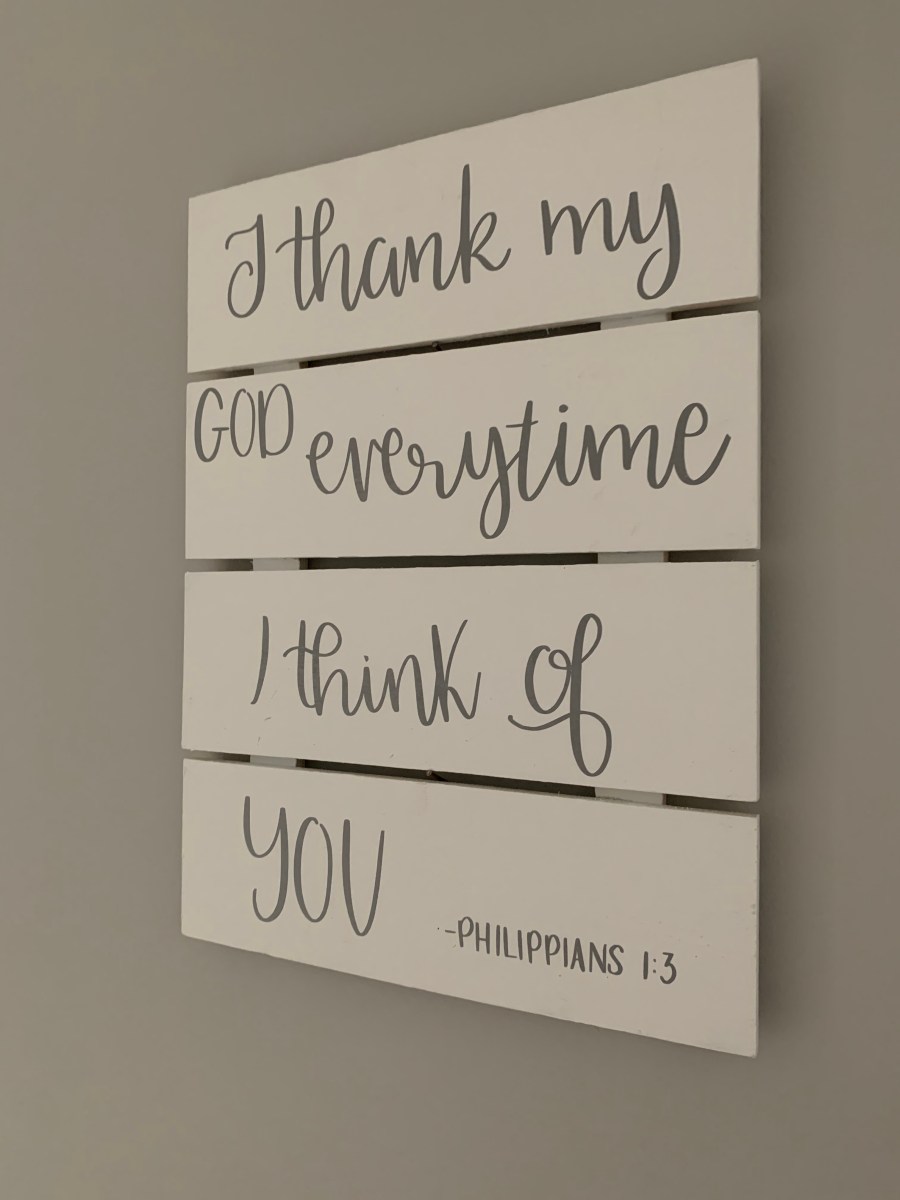 I thank my
GOD everytime
I think of
YOU
-PHILIPPIANS 1:3